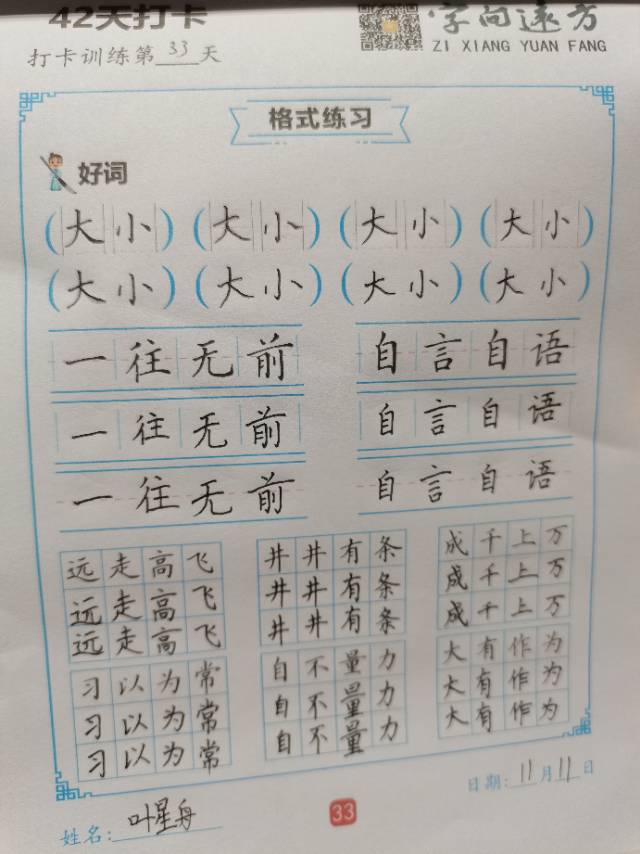 42天打卡
字向远方
打卡训练第33天
ZI XIANG YUAN FANG
格式练习
好词
(大小) (大小) (大小) (大小)
(大小) (大小) (大小) (大小)
一往无前 自言自语
一往无前 自言自语
一往无前 自言自语
远走高飞 井井有条 成千上万
远走高飞 井井有条 成千上万
远走高飞 井井有条 成千上万
习以为常 自不量力 大有作为
习以为常 自不量力 大有作为
习以为常 自不量力 大有作为
日期:11月11日
姓名:叶星舟
33